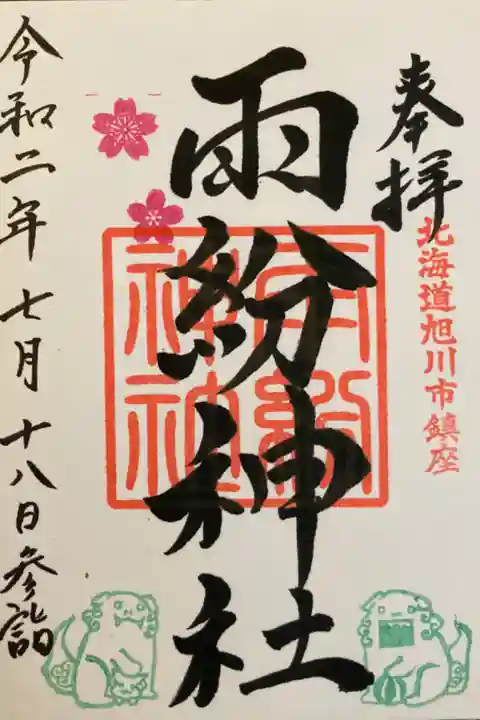 奉拝
北海道旭川市鎮座
雨紛神社
雨紛
神社
令和二年七月十八日参詣